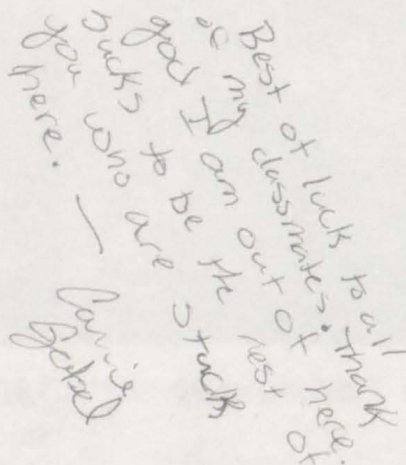 Best of luck to all
of my classmates. Thank
god I am out of here.
Sucks to be the rest of
you who are stuck
here. — Carrie